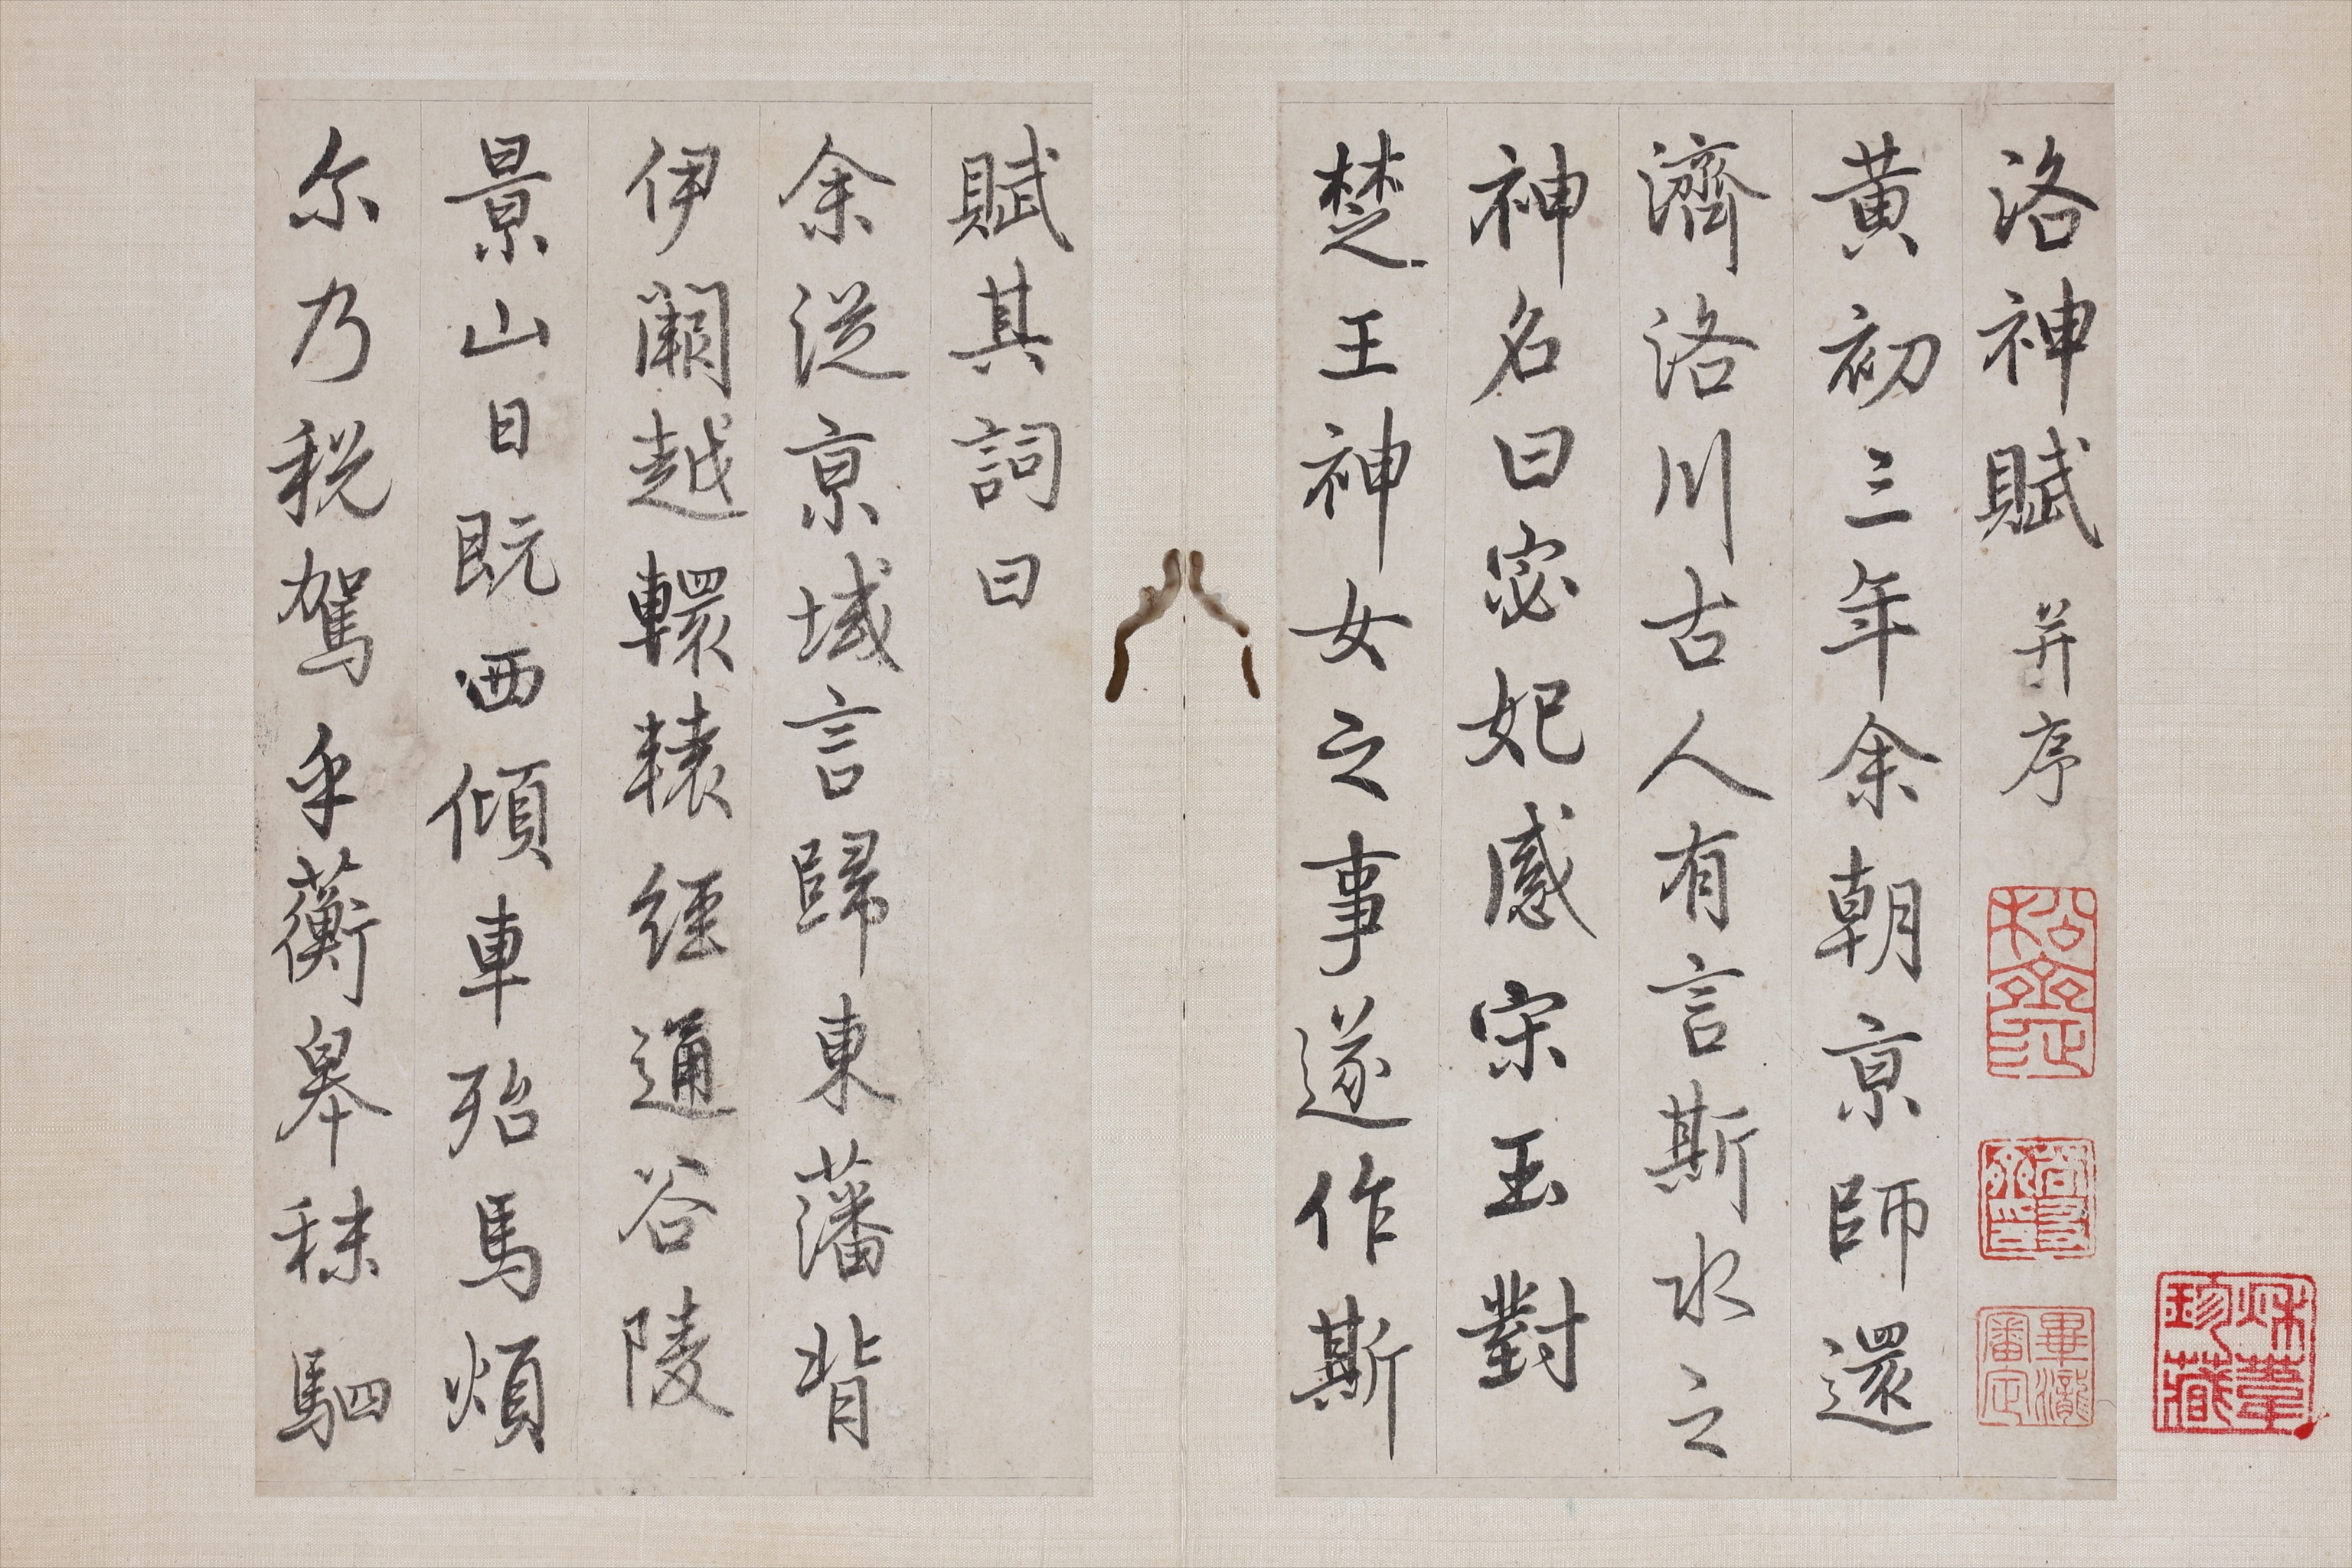 洛神賦 并序
黃初三年余朝京師還
濟洛川古人有言斯水之
神名曰宓妃感宋玉對
楚王神女之事遂作斯
賦其詞曰
余從京域言歸東藩背
伊闕越轘轅經通谷陵
景山日既西傾車殆馬煩
尔乃税駕乎蘅皋秣駟
畢瀧審定
珍藏